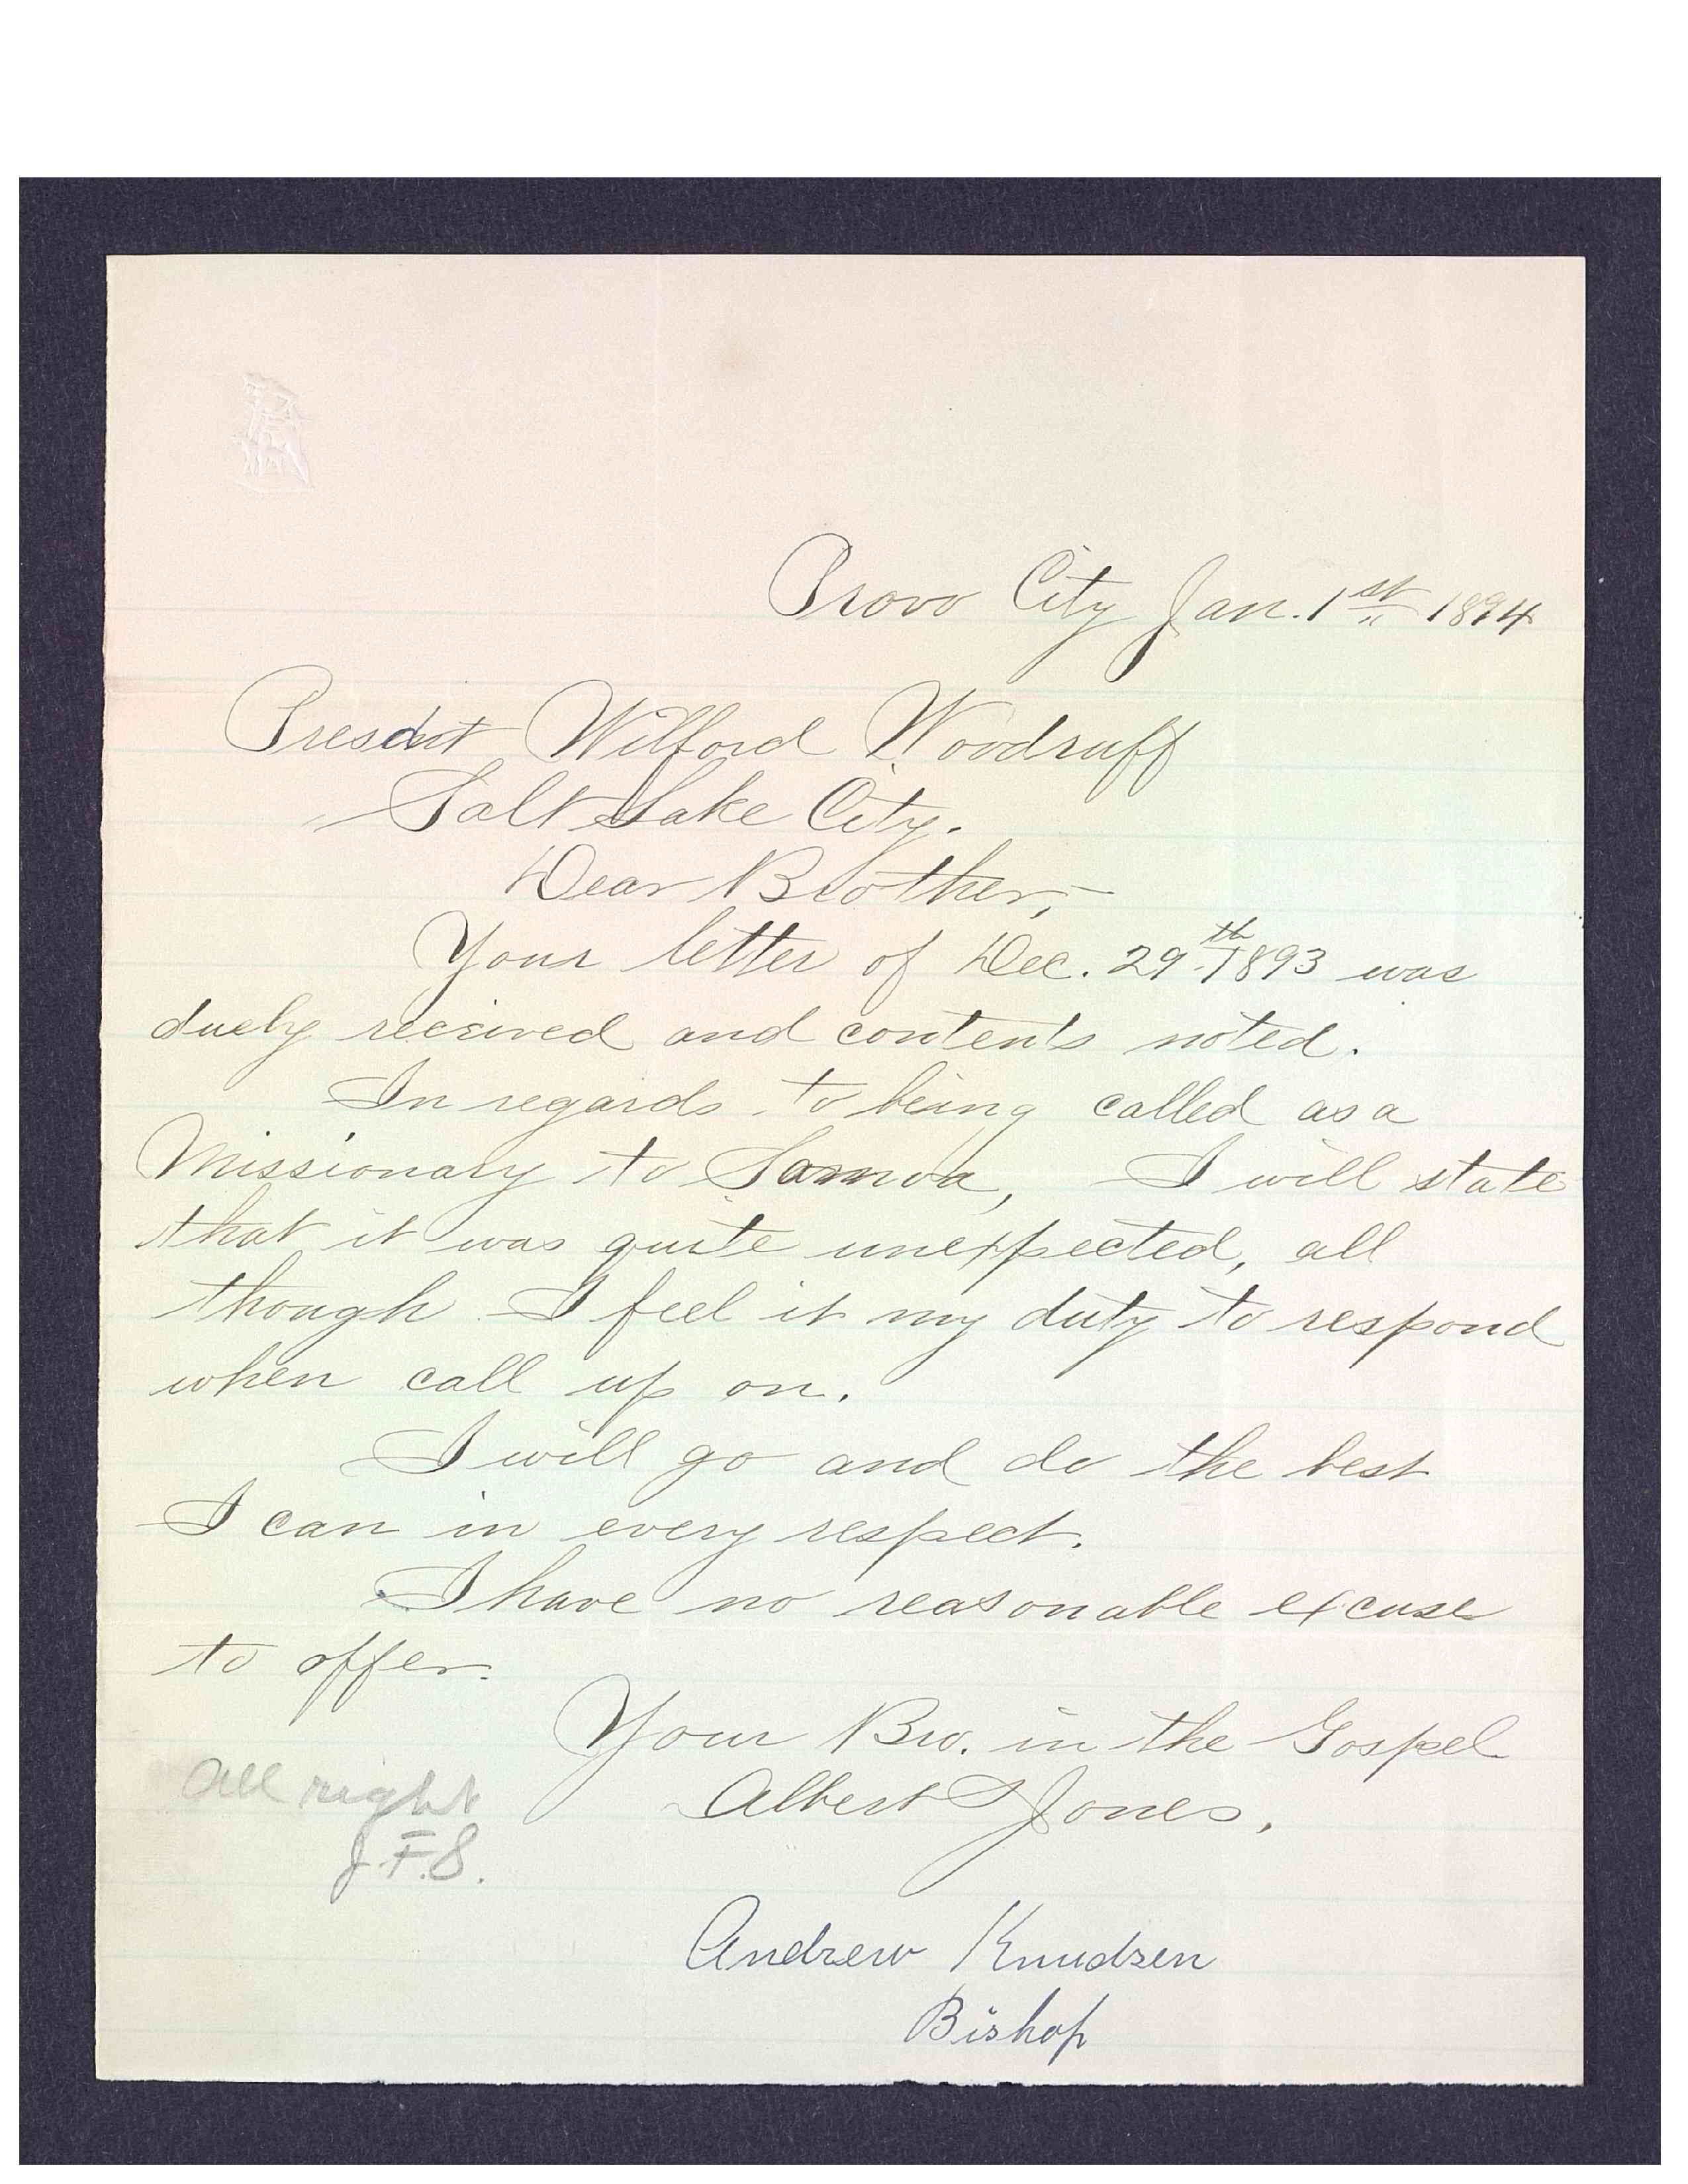 Provo City Jan. 1st 1894
Presdent Wilford Woodruff
Salt Lake City.
Dear Brother,
Your letter of Dec. 29th 1893 was
duely received and contents noted.
In regards to being called as a
Missionary to Samoa, I will state
that it was quite unexpected, all
though I feel it my duty to respond
when call up on.
I will go and do the best
I can in every respect.
I have no reasonable excuse
to offer.
Your Bro. in the Gospel
Albert S Jones,
All right
J.F.S.
Andrew Knudsen
Bishop